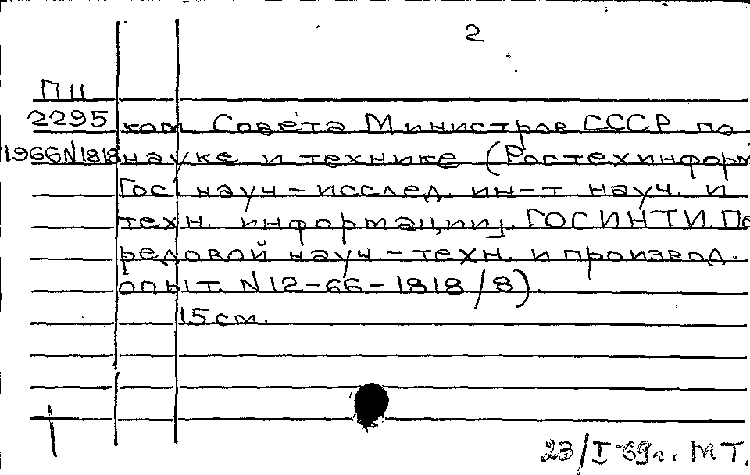 2
П 11
2295 ком. Совета Министров СССР по
1966 N1818 науке и технике (Ростехинформ
Гос. науч-исслед. ин-т науч. и
техн. информации]. ГОСИНТИ. Пе
редовой науч-техн. и производ.
опыт. N12-66-1818/8).
15 см.
23/I-69г. МТ.